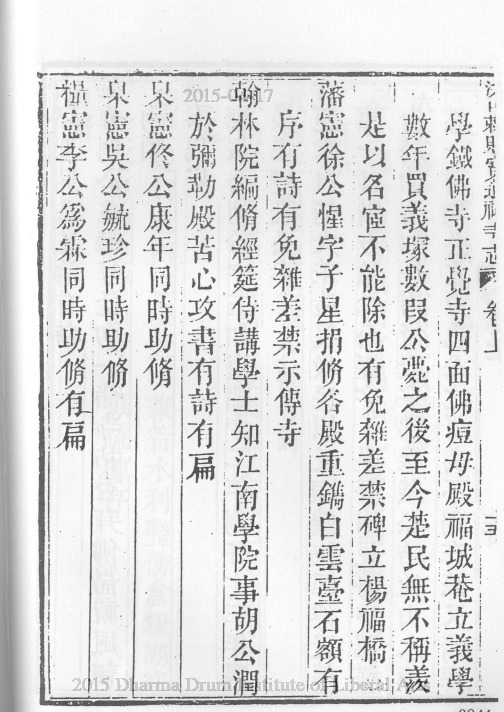 學鐵佛寺正覺寺四面佛痘母殿福城菴立義學
數年買義塚數段公薨之後至今楚民無不稱義
是以名宦不能除也有免雜差禁碑立楊福橋
藩憲徐公惺字子星捐脩谷殿重鐫白雲臺石額有
序有詩有免雜差禁示傳寺
翰林院編脩經筵侍講學士知江南學院事胡公潤
於彌勒殿苦心攻書有詩有扁
臬憲佟公康年同時助脩
臬憲吳公毓珍同時助脩
糧憲李公為霖同時助脩有扁
2015 Dharma Drum Institute of Liberal